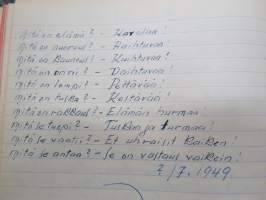 mitä on elämä? - Karvelua!
mitä on nuoruus? - Haihtuvaa!
mitä on kauneus? - Kuihtuvaa!
mitä on onni? - Vaihtuvaa!
mitä on lempi? - Pettävää!
mitä on tuska? - Kestävää!
mitä on rakkaus? - Elämän hurmaa!
mitä se tuopi? - Tuskaa ja turmaa!
mitä se vaatii? - Et uhraisit kaiken!
mitä se antaa? - Se on vastaus vaikein!
2/7. 1949.